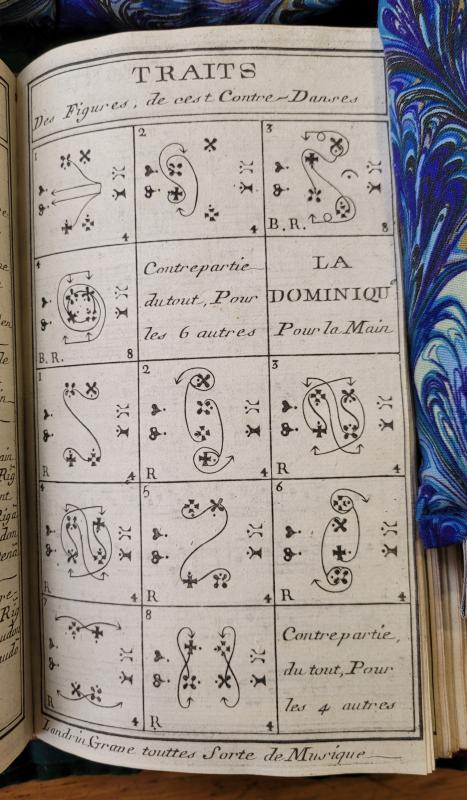 TRAITS
Des Figures, de cest Contre-Danses
1
4
2
4
3
B. R.
8
4
B. R.
8
Contrepartie
du tout, Pour
les 6 autres
LA
DOMINIQU
Pour la Main
1
R
4
2
4
3
R
4
4
R
4
5
R
4
6
R
4
7
R
4
8
R
4
Contrepartie,
du tout, Pour
les 4 autres
Landrin Grave touttes Sorte de Musique